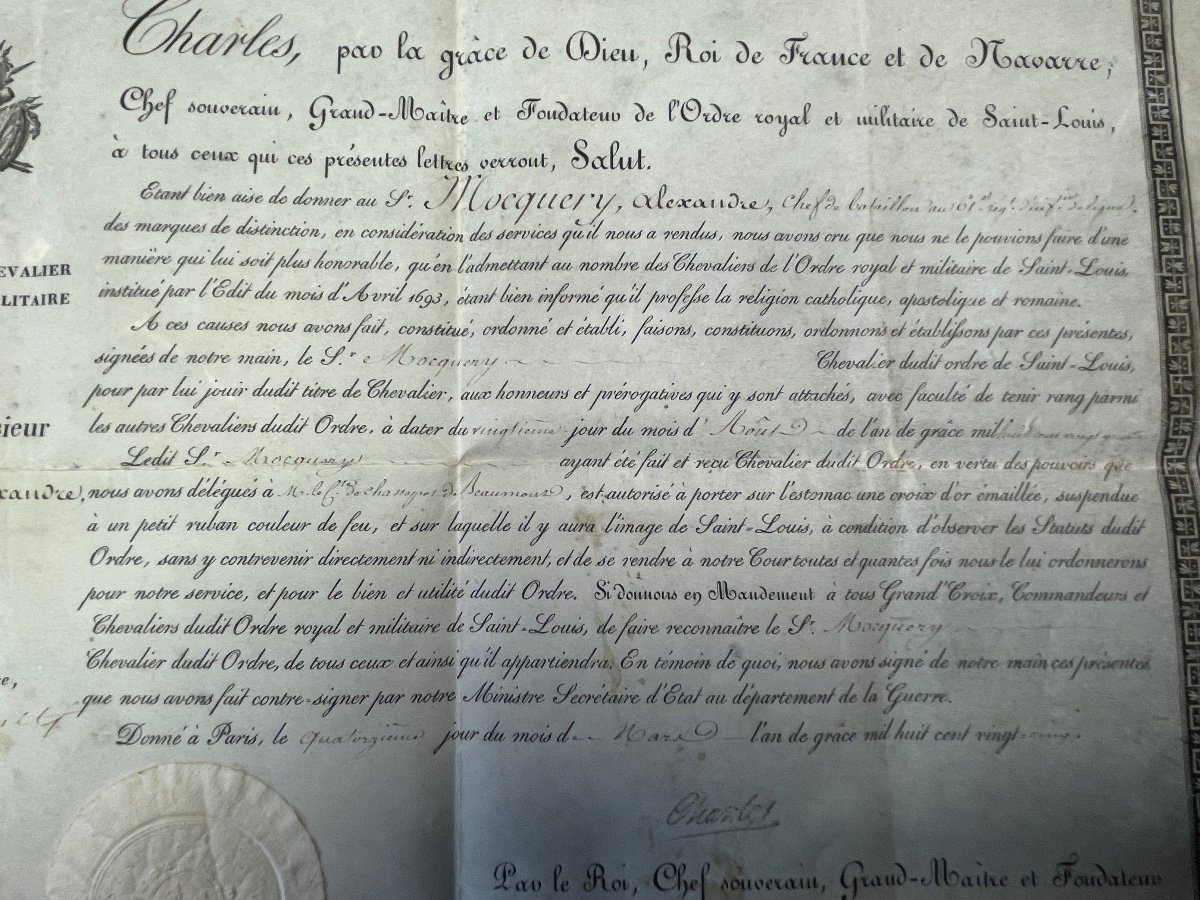 Charles, par la grâce de Dieu, Roi de France et de Navarre,
Chef souverain, Grand-Maître et Fondateur de l'Ordre royal et militaire de Saint-Louis,
à tous ceux qui ces présentes lettres verront, Salut.
Etant bien aise de donner au S.r Mocquery, Alexandre, chef de bataillon au 61e. reg.t d'inf.rie de ligne,
des marques de distinction, en considération des services qu'il nous a rendus, nous avons cru que nous ne le pouvions faire d'une
manière qui lui soit plus honorable, qu'en l'admettant au nombre des Chevaliers de l'Ordre royal et militaire de Saint-Louis,
EVALIER
institué par l'Edit du mois d'Avril 1693, étant bien informé qu'il professe la religion catholique, apostolique et romaine.
LITAIRE
A ces causes nous avons fait, constitué, ordonné et établi, faisons, constituons, ordonnons et établissons par ces présentes,
signées de notre main, le S.r Mocquery Chevalier dudit ordre de Saint-Louis,
pour par lui jouir dudit titre de Chevalier, aux honneurs et prérogatives qui y sont attachés, avec faculté de tenir rang parmi
sieur
les autres Chevaliers dudit Ordre, à dater du vingtième jour du mois d'Août de l'an de grâce mil huit cent vingt
Ledit S.r Mocquery ayant été fait et reçu Chevalier dudit Ordre, en vertu des pouvoirs que
exandre,
nous avons délégués à M. le C.te de Beaumont, est autorisé à porter sur l'estomac une croix d'or émaillée, suspendue
à un petit ruban couleur de feu, et sur laquelle il y aura l'image de Saint-Louis, à condition d'observer les Statuts dudit
Ordre, sans y contrevenir directement ni indirectement, et de se rendre à notre Cour toutes et quantes fois nous le lui ordonnerons
pour notre service, et pour le bien et utilité dudit Ordre. Si donnons en Mandement à tous Grand'Croix, Commandeurs et
Chevaliers dudit Ordre royal et militaire de Saint-Louis, de faire reconnaître le S.r Mocquery
Chevalier dudit Ordre, de tous ceux et ainsi qu'il appartiendra. En témoin de quoi, nous avons signé de notre main ces présentes,
que nous avons fait contre-signer par notre Ministre Secrétaire d'Etat au département de la Guerre.
Donné à Paris, le quatorzième jour du mois de Mars l'an de grâce mil huit cent vingt
Charles
Par le Roi, Chef souverain, Grand-Maître et Fondateur